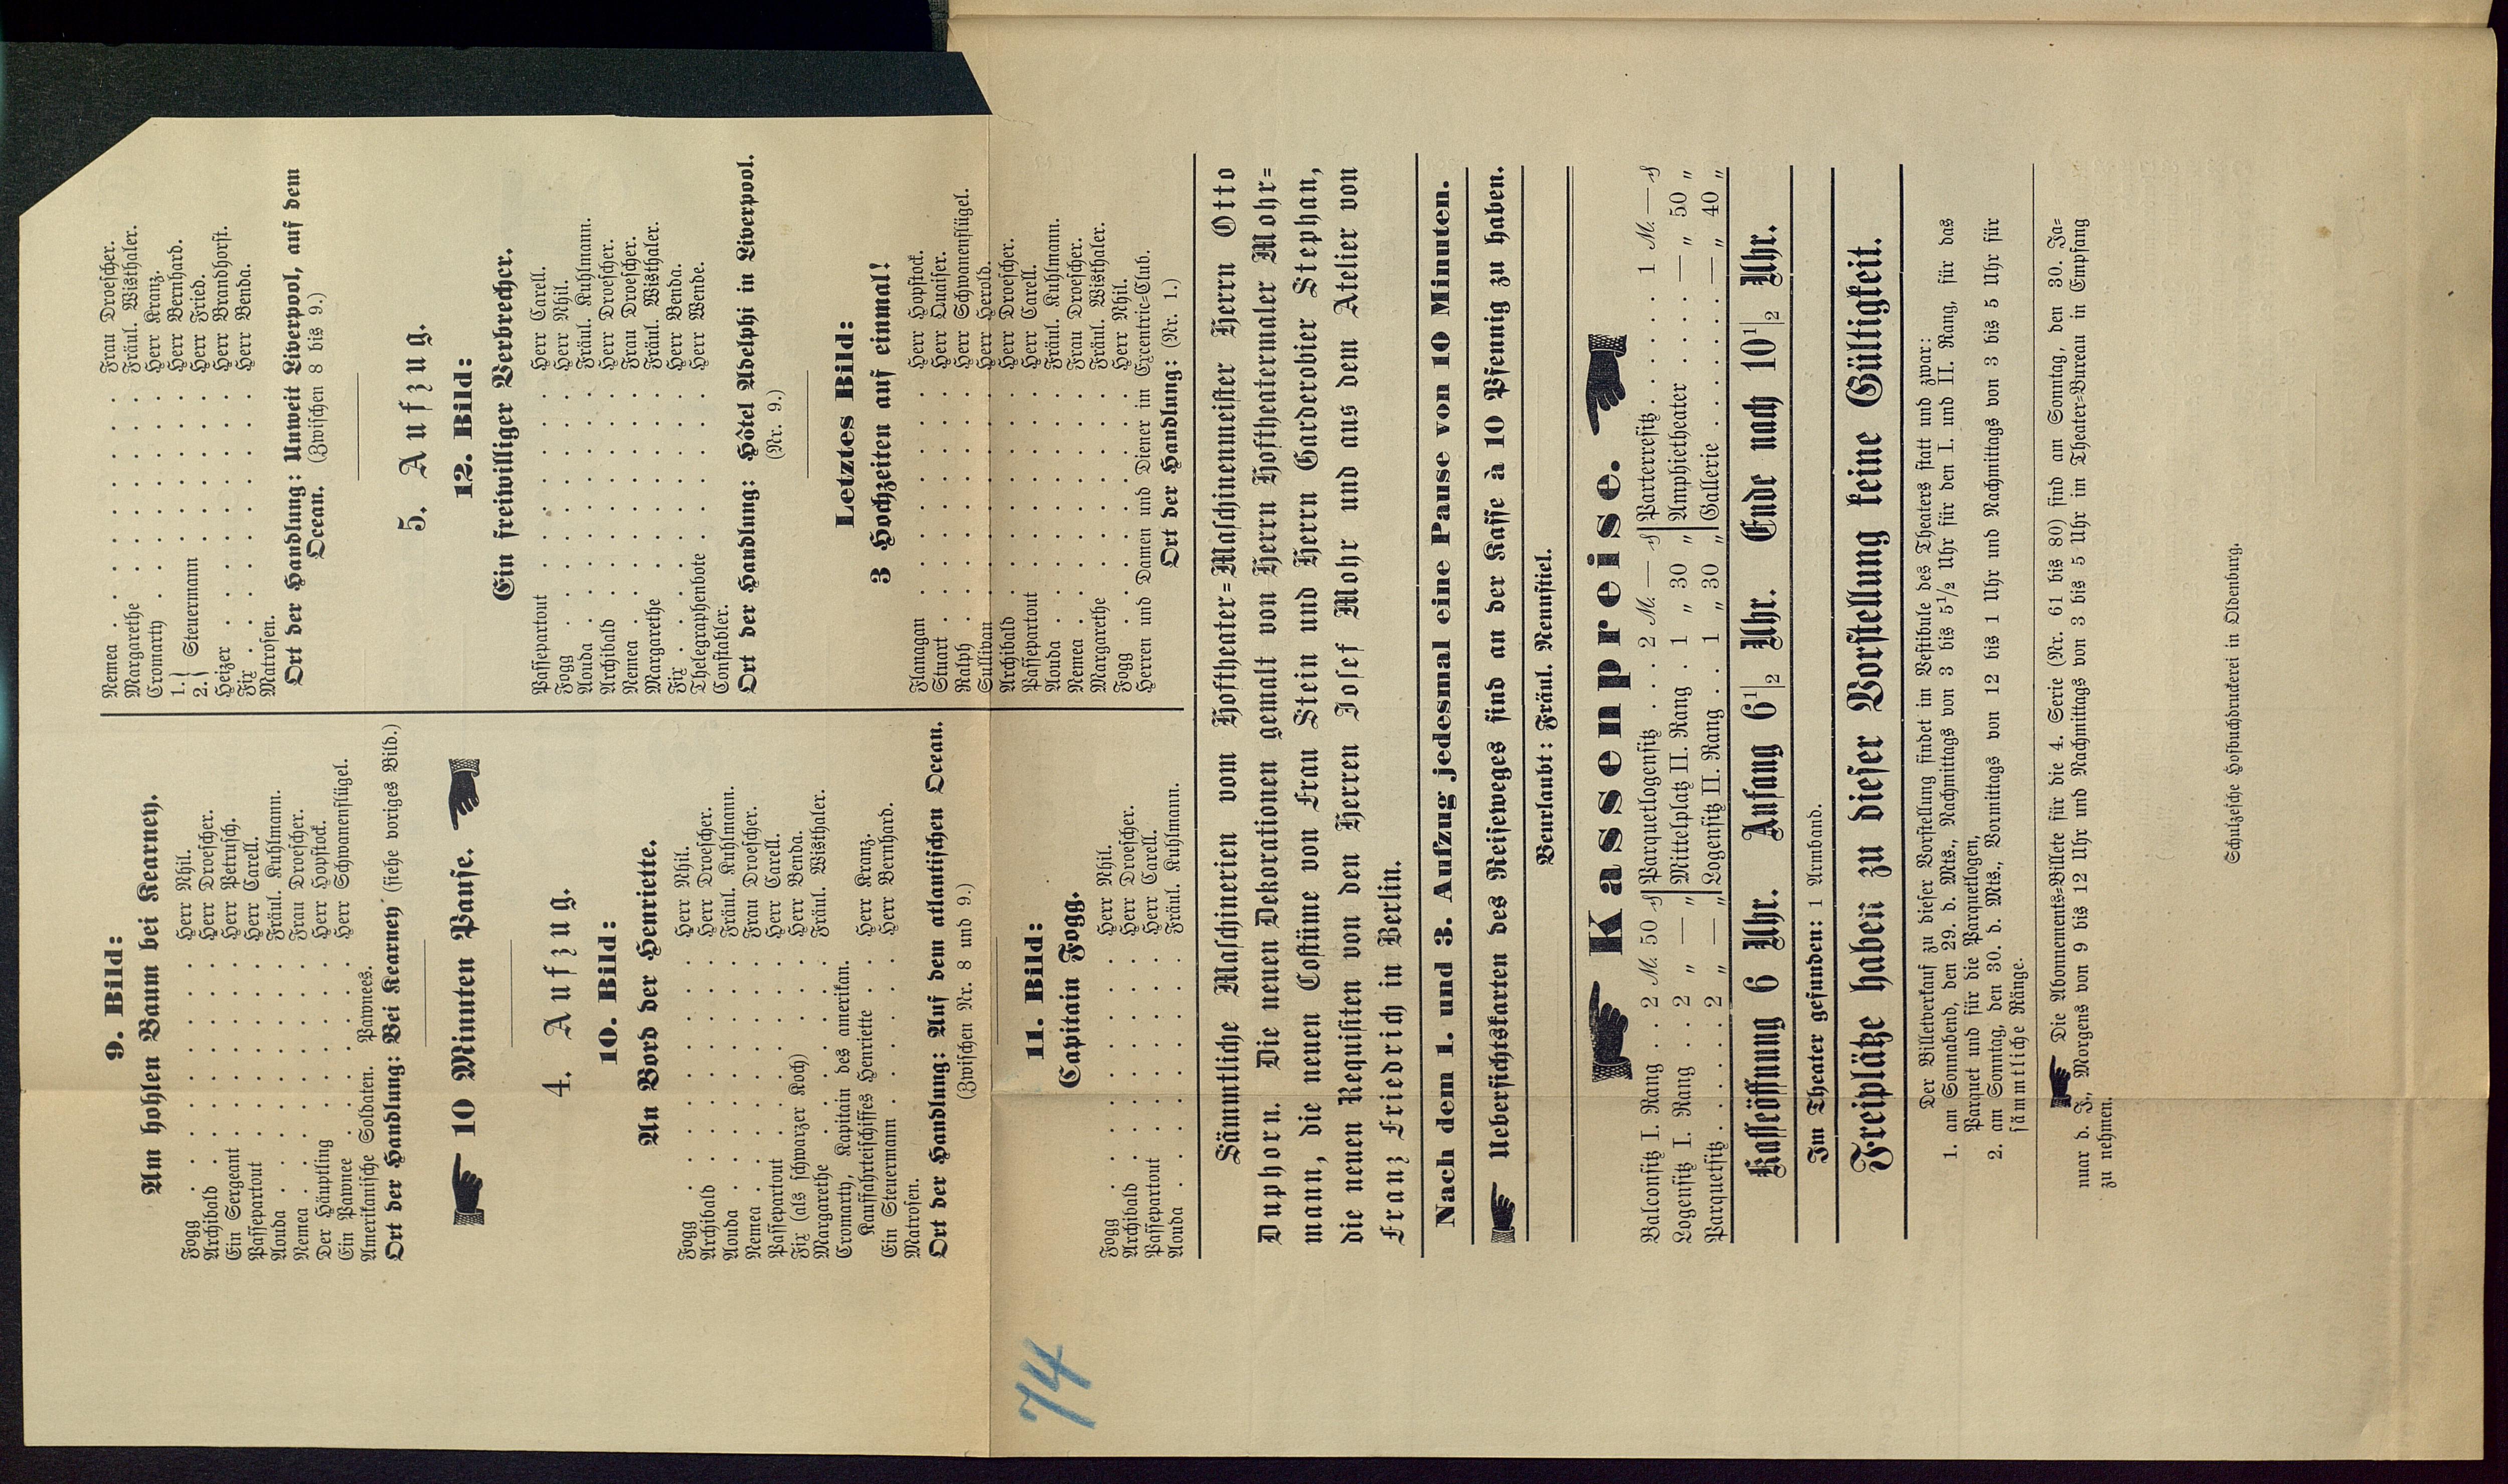 9. Bild:
Am hohlen Baum bei Kearney.
Fogg . . . . . . . . . . . Herr Rhil.
Archibald . . . . . . . . . . Herr Droescher.
Ein Sergeant . . . . . . . . . Herr Petrusch.
Passepartout . . . . . . . . . Herr Carell.
Aouda . . . . . . . . . . Fräul. Kuhlmann.
Nemea . . . . . . . . . . Frau Droescher.
Der Häuptling . . . . . . . . Herr Hopstock.
Ein Pawnee . . . . . . . . . Herr Schwanenflügel.
Amerikanische Soldaten. Pawnees.
Ort der Handlung: Bei Kearney (siehe voriges Bild.)
10 Minuten Pause.
4. Aufzug.
10. Bild:
An Bord der Henriette.
Fogg . . . . . . . . . . Herr Rhil.
Archibald . . . . . . . . . Herr Droescher.
Aouda . . . . . . . . . . Fräul. Kuhlmann.
Nemea . . . . . . . . . . Frau Droescher.
Passepartout . . . . . . . . . Herr Carell.
Fix (als schwarzer Koch) . . . . . Herr Benda.
Margarethe . . . . . . . . . Fräul. Wisthaler.
Cromarty, Kapitain des amerikan.
Kauffahrteischiffes Henriette . . Herr Kranz.
Ein Steuermann . . . . . . . Herr Bernhard.
Matrosen.
Ort der Handlung: Auf dem atlantischen Ocean.
(Zwischen Nr. 8 und 9.)
11. Bild:
Capitain Fogg.
Fogg . . . . . . . . . . Herr Rhil.
Archibald . . . . . . . . . Herr Droescher.
Passepartout . . . . . . . . Herr Carell.
Aouda . . . . . . . . . . Fräul. Kuhlmann.
Nemea . . . . . . . . . . Frau Droescher.
Margarethe . . . . . . . . . Fräul. Wisthaler.
Cromarty . . . . . . . . . Herr Kranz.
1.} Steuermann . . . . . . . Herr Bernhard.
2.} . . . . . . . Herr Fried.
Heizer . . . . . . . . . . Herr Brandhorst.
Fix . . . . . . . . . . . Herr Benda.
Matrosen.
Ort der Handlung: Unweit Liverpool, auf dem
Ocean. (Zwischen 8 bis 9.)
5. Aufzug.
12. Bild:
Ein freiwilliger Verbrecher.
Passepartout . . . . . . . . Herr Carell.
Fogg . . . . . . . . . . Herr Rhil.
Aouda . . . . . . . . . . Fräul. Kuhlmann.
Archibald . . . . . . . . . Herr Droescher.
Nemea . . . . . . . . . . Frau Droescher.
Margarethe . . . . . . . . . Fräul. Wisthaler.
Fix . . . . . . . . . . . Herr Benda.
Thelegraphenbote . . . . . . . Herr Wende.
Constabler.
Ort der Handlung: Hôtel Adelphi in Liverpool.
(Nr. 9.)
Letztes Bild:
3 Hochzeiten auf einmal!
Flanagan . . . . . . . . . Herr Hopstock.
Stuart . . . . . . . . . . Herr Quaiser.
Ralph . . . . . . . . . . Herr Schwanenflügel.
Sullivan . . . . . . . . . Herr Herold.
Archibald . . . . . . . . . Herr Droescher.
Passepartout . . . . . . . . Herr Carell.
Aouda . . . . . . . . . . Fräul. Kuhlmann.
Nemea . . . . . . . . . . Frau Droescher.
Margarethe . . . . . . . . . Fräul. Wisthaler.
Fogg . . . . . . . . . . Herr Rhil.
Herren und Damen und Diener im Excentric-Club.
Ort der Handlung: (Nr. 1.)
Sämmtliche Maschinerien vom Hoftheater-Maschinenmeister Herrn Otto
Duphorn. Die neuen Dekorationen gemalt von Herrn Hoftheatermaler Mohr-
mann, die neuen Costüme von Frau Stein und Herrn Garderobier Stephan,
die neuen Requisiten von den Herren Josef Mohr und aus dem Atelier von
Franz Friedrich in Berlin.
Nach dem 1. und 3. Aufzug jedesmal eine Pause von 10 Minuten.
Uebersichtskarten des Reiseweges sind an der Kasse à 10 Pfennig zu haben.
Beurlaubt: Fräul. Rennstiel.
Kassenpreise.
Balconsitz I. Rang . . 2 M. 50 ₰ | Parquetlogensitz . . . 2 M. — ₰ | Parterresitz . . . . . 1 M. — ₰
Logensitz I. Rang . . 2 „ — „ | Mittelplatz II. Rang . . 1 „ 30 „ | Amphietheater . . . . — „ 50 „
Parquetsitz . . . . . 2 „ — „ | Logensitz II. Rang . . . 1 „ 30 „ | Gallerie . . . . . . . — „ 40 „
Kasseöffnung 6 Uhr. Anfang 6½ Uhr. Ende nach 10½ Uhr.
Im Theater gefunden: 1 Armband.
Freiplätze haben zu dieser Vorstellung keine Gültigkeit.
Der Billetverkauf zu dieser Vorstellung findet im Vestibule des Theaters statt und zwar:
1. am Sonnabend, den 29. d. Mts., Nachmittags von 3 bis 5½ Uhr für den I. und II. Rang, für das
Parquet und für die Parquetlogen,
2. am Sonntag, den 30. d. Mts., Vormittags von 12 bis 1 Uhr und Nachmittags von 3 bis 5 Uhr für
sämmtliche Ränge.
Die Abonnements-Billete für die 4. Serie (Nr. 61 bis 80) sind am Sonntag, den 30. Ja-
nuar d. J., Morgens von 9 bis 12 Uhr und Nachmittags von 3 bis 5 Uhr im Theater-Bureau in Empfang
zu nehmen.
Schulzesche Hofbuchdruckerei in Oldenburg.
74